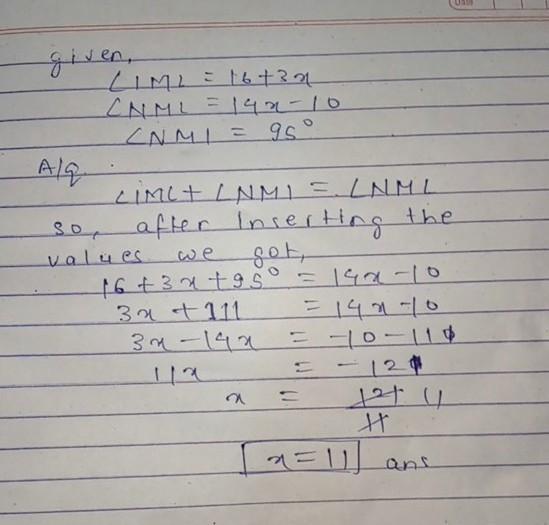 given,
∠IML = 16+3x
∠NML = 14x-10
∠NMI = 95°
A/q
∠IML + ∠NMI = ∠NML
so, after Inserting the
values we got,
16+3x+95° = 14x-10
3x + 111 = 14x-10
3x-14x = -10-111
11x = -121
x = 121 11
11
x=11 ans